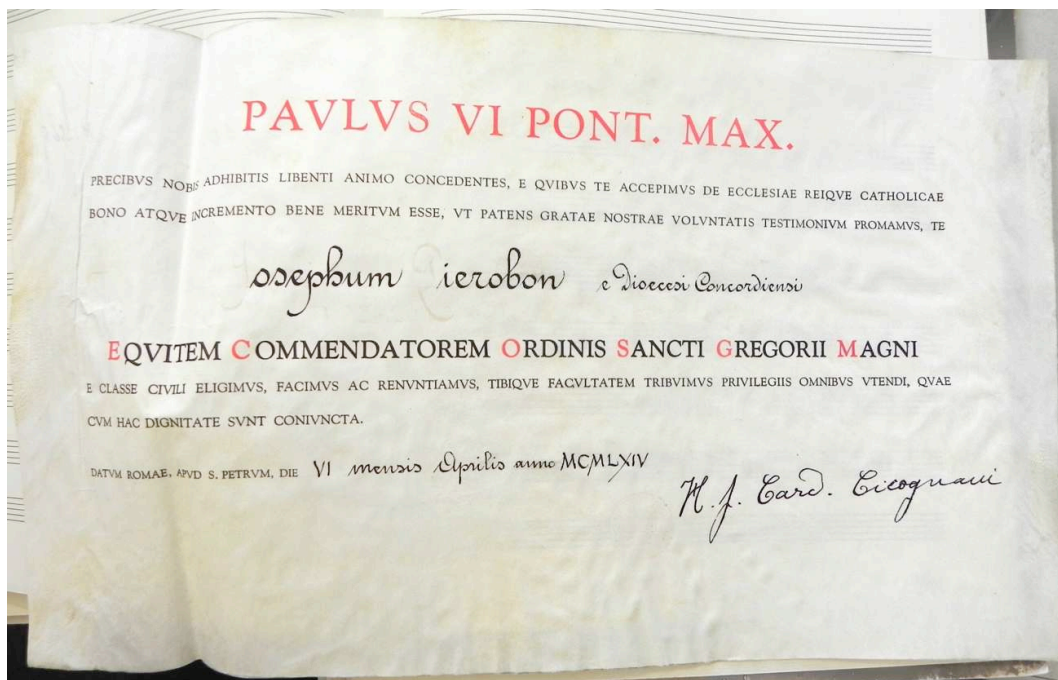 PAVLVS VI PONT. MAX.
PRECIBVS NOBIS ADHIBITIS LIBENTI ANIMO CONCEDENTES, E QVIBVS TE ACCEPIMVS DE ECCLESIAE REIQVE CATHOLICAE
BONO ATQVE INCREMENTO BENE MERITVM ESSE, VT PATENS GRATAE NOSTRAE VOLVNTATIS TESTIMONIVM PROMAMVS, TE
osephum ierobon e Dioecesi Concordiensi
EQVITEM COMMENDATOREM ORDINIS SANCTI GREGORII MAGNI
E CLASSE CIVILI ELIGIMVS, FACIMVS AC RENVNTIAMVS, TIBIQVE FACVLTATEM TRIBVIMVS PRIVILEGIIS OMNIBVS VTENDI, QVAE
CVM HAC DIGNITATE SVNT CONIVNCTA.
DATVM ROMAE, APVD S. PETRVM, DIE VI mensis Aprilis anno MCMLXIV
H. J. Card. Cicognani